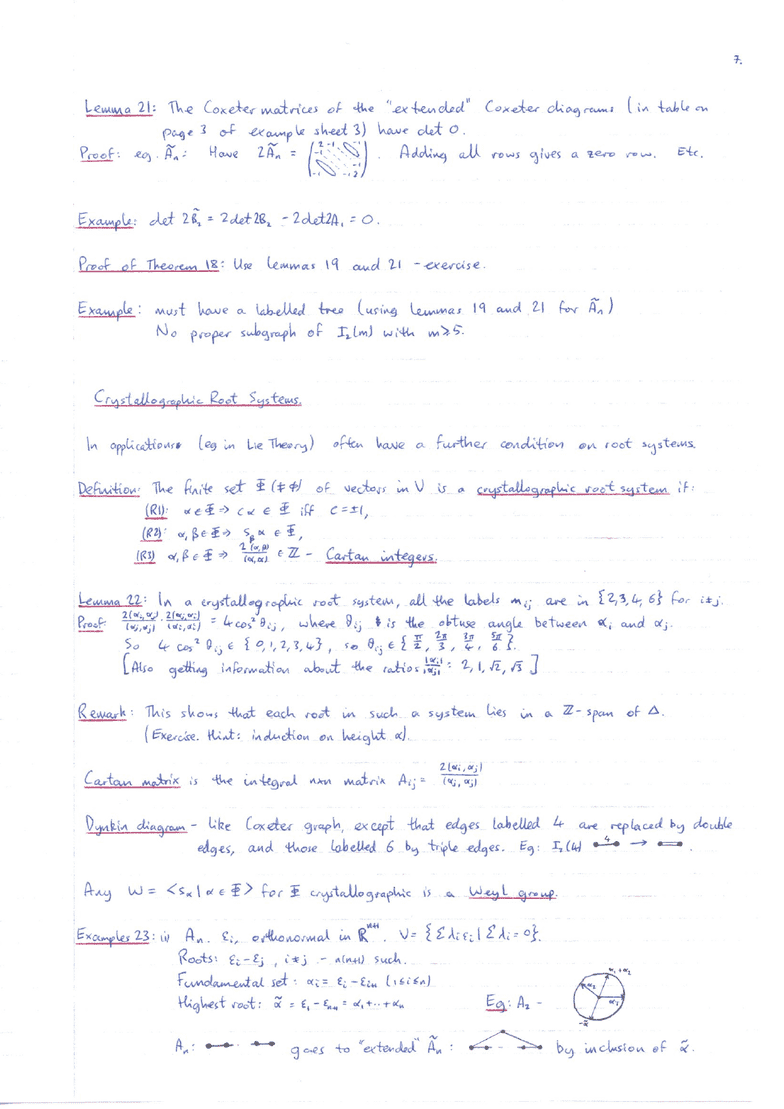 7.
Lemma 21: The Coxeter matrices of the "extended" Coxeter diagrams (in table on
page 3 of example sheet 3) have det 0.
Proof: eg. Ãₙ: Have 2Ãₙ = ( 2 -1 -1 -1 -1 2 ). Adding all rows gives a zero row. Etc.
Example: det 2B̃₂ = 2det2B₂ - 2det2A₁ = 0.
Proof of Theorem 18: Use lemmas 19 and 21 - exercise.
Example: must have a labelled tree (using Lemmas 19 and 21 for Ãₙ)
No proper subgraph of I₂(m) with m≥5.
Crystallographic Root Systems.
In applications (eg in Lie Theory) often have a further condition on root systems.
Definition: The finite set Φ (≠ϕ) of vectors in V is a crystallographic root system if:
(R1): α∈Φ ⇒ cα ∈ Φ iff c=±1,
(R2): α,β∈Φ ⇒ S_β α ∈ Φ,
(R3) α,β∈Φ ⇒ 2(α,β)/(α,α) ∈ ℤ - Cartan integers.
Lemma 22: In a crystallographic root system, all the labels m_ij are in {2,3,4,6} for i≠j.
Proof: 2(αi,αj)/(αj,αj) . 2(αj,αi)/(αi,αi) = 4cos²θ_ij, where θ_ij is the obtuse angle between αi and αj.
So 4cos²θ_ij ∈ {0,1,2,3,4}, so θ_ij ∈ {π/2, 2π/3, 3π/4, 5π/6}.
[Also getting information about the ratios |αi|/|αj| : 2, 1, √2, √3]
Remark: This shows that each root in such a system lies in a ℤ-span of Δ.
(Exercise. Hint: induction on height α).
Cartan matrix is the integral n×n matrix A_ij = 2(αi,αj)/(αj,αj)
Dynkin diagram - like Coxeter graph, except that edges labelled 4 are replaced by double
edges, and those labelled 6 by triple edges. Eg: I₂(4) 4 → .
Any W = <S_α | α ∈ Φ> for Φ crystallographic is a Weyl group.
Examples 23: i) Aₙ. εi, orthonormal in ℝⁿ⁺¹. V={Σλiεi | Σλi=0}.
Roots: εi-εj, i≠j - n(n+1) such.
Fundamental set: αi = εi - εi+1 (1≤i≤n)
Highest root: α̃ = ε₁ - εn+1 = α₁+...+αn Eg: A₂ - α₁+α₂ α₂ α₁ -α̃
Aₙ: goes to "extended" Ãₙ: by inclusion of α̃.